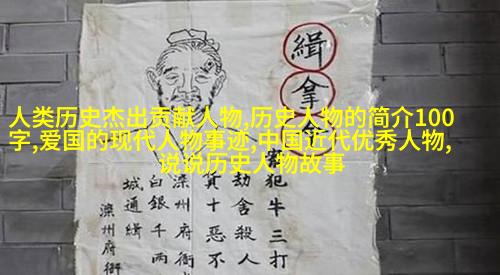 人类历史杰出贡献人物,历史人物的简介100
字,爱国的现代人物事迹,中国近代优秀人物,
说说历史人物故事
緝拿
犯牛三打
劫舍殺人
其十惡不
滦州府衙
白銀千兩
城通緝
滦州府衙